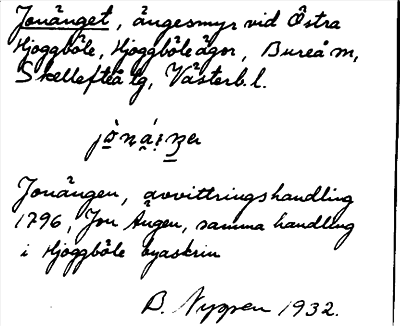 Jonänget, ängesmyr vid Östra
Hjoggböle, Hjoggböle ägor, Bureå m,
Skellefteå tg, Västerb. l.
Jonängen, avvittringshandling
1796, Jon Ängen, samma handling
i Hjoggböle byaskrin
B. Nyppen 1932.